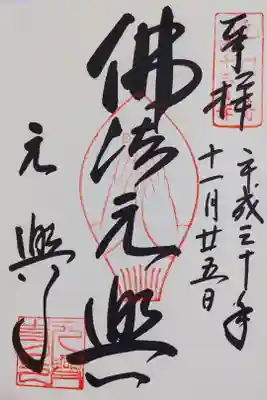 奉拝
平成三十年
十一月廿五日
佛法元興
元興寺